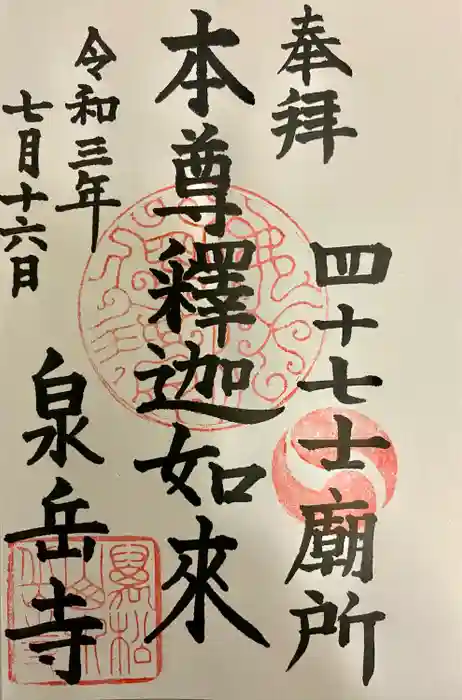 奉拜
四十七士廟所
本尊釋迦如來
令和三年
七月十六日
泉岳寺